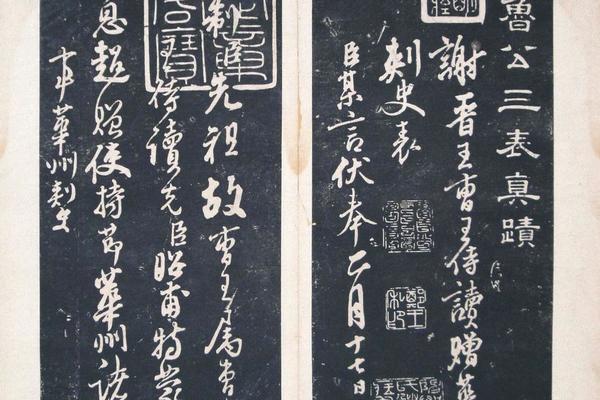 魯公三表真蹟
謝晉王曹王侍讀贈華
刺史表
臣某言伏奉二月十七日
制先祖故晉王曹
侍讀先臣昭甫特蒙
息超贈使持節華州諸
事華州刺史